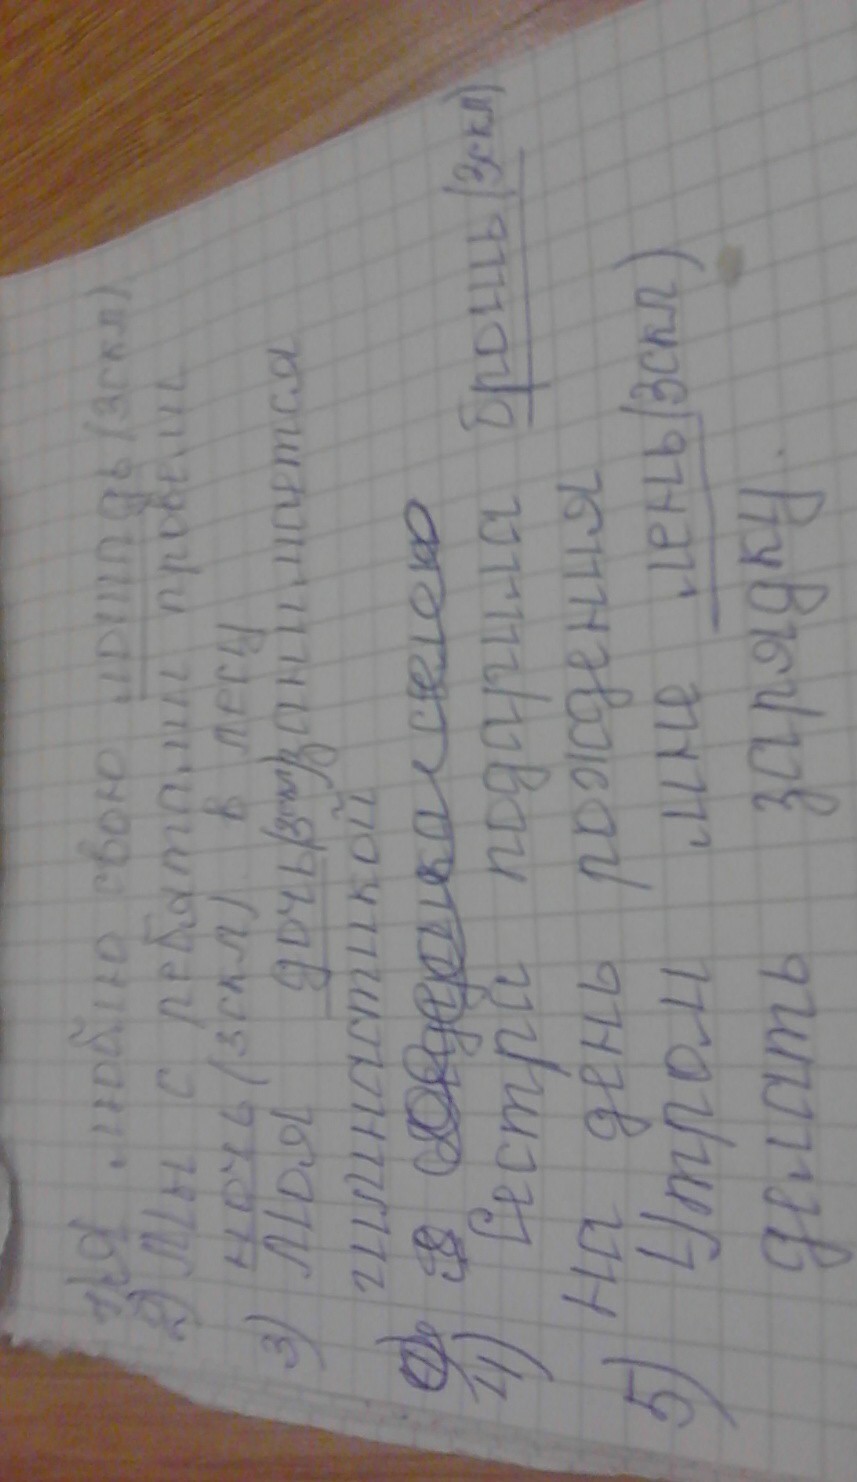 1) Я люблю свою лошадь (3скл)
2) Мы с ребятами провели
ночь (3скл) в лесу
3) Моя дочь (3скл) занимается
гимнастикой
4) Сестра подарила брошь (3скл)
на день рождения
5) Утром мне лень (3скл)
делать зарядку.